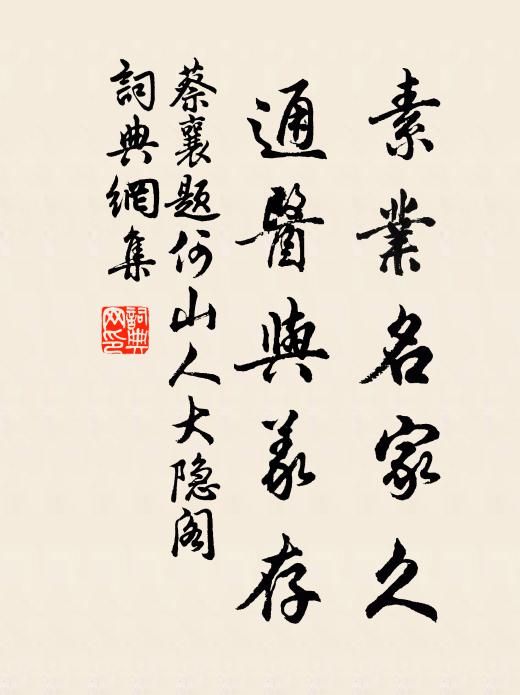 素業名家久
通醫與義存
蔡襄題何山人大隐阁
詞典網集
詞典网印